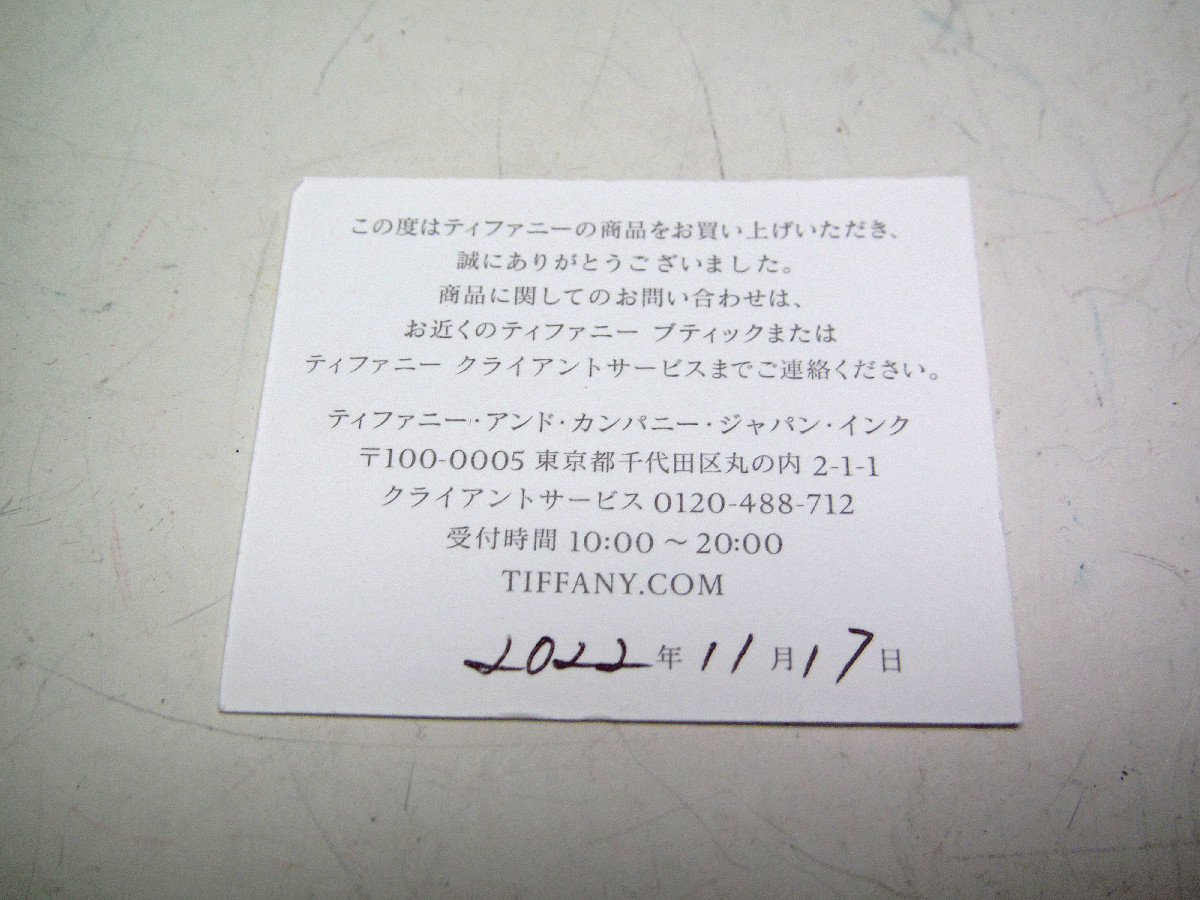 この度はティファニーの商品をお買い上げいただき、
誠にありがとうございました。
商品に関してのお問い合わせは、
お近くのティファニー ブティックまたは
ティファニー クライアントサービスまでご連絡ください。
ティファニー・アンド・カンパニー・ジャパン・インク
〒100-0005 東京都千代田区丸の内 2-1-1
クライアントサービス 0120-488-712
受付時間 10:00 〜 20:00
TIFFANY.COM
2022 年 11 月 17 日